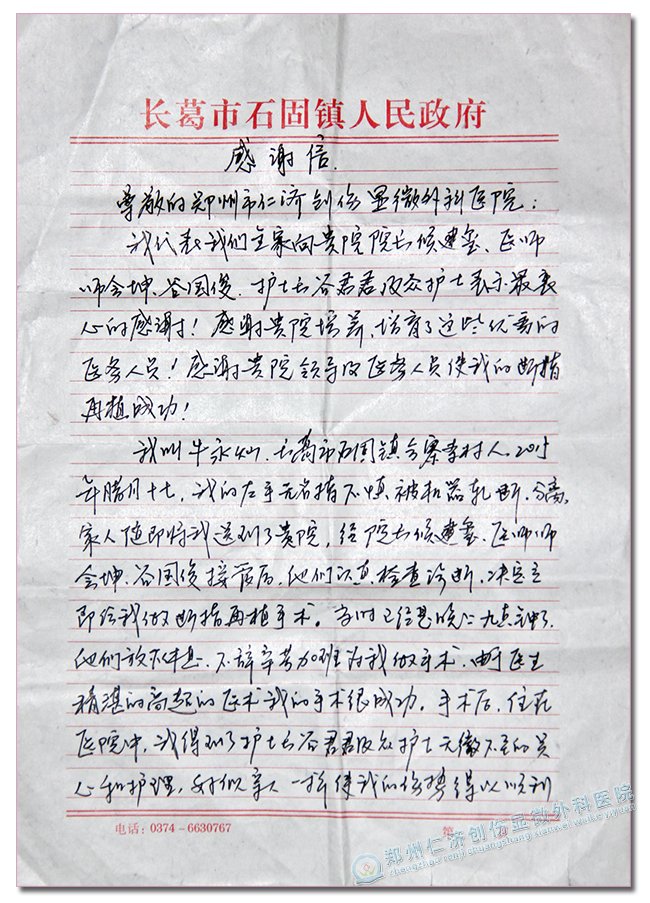 长葛市石固镇人民政府
感谢信.
尊敬的郑州市仁济创伤显微外科医院:
我代表我们全家向贵院院长候建玺、医师
师会坤、谷国俊.护士长谷君君及众护士表示最衷
心的感谢!感谢贵院培养、培育了这些优秀的
医务人员!感谢贵院领导及医务人员使我的断指
再植成功!
我叫牛永灿.长葛市石固镇合寨李村人.2015
年腊月十七,我的左手无名指不慎被机器轧断、分离,
家人随即将我送到了贵院,经院长候建玺、医师师
会坤、谷国俊接管后,他们认真检查诊断.决定立
即给我做断指再植手术。当时已经是晚上九点钟了.
他们放下休息.不辞辛苦加班为我做手术.由于医生
精湛的高超的医术我的手术很成功。手术后.住在
医院中,我得到了护士长谷君君及众护士无微不至的关
心和护理,好似亲人一样使我的伤势得以顺利
电话:0374-6630767
第
郑州仁济创伤显微外科医院
zhengzhourenjichuangshangxianweiwaikeyiyuan